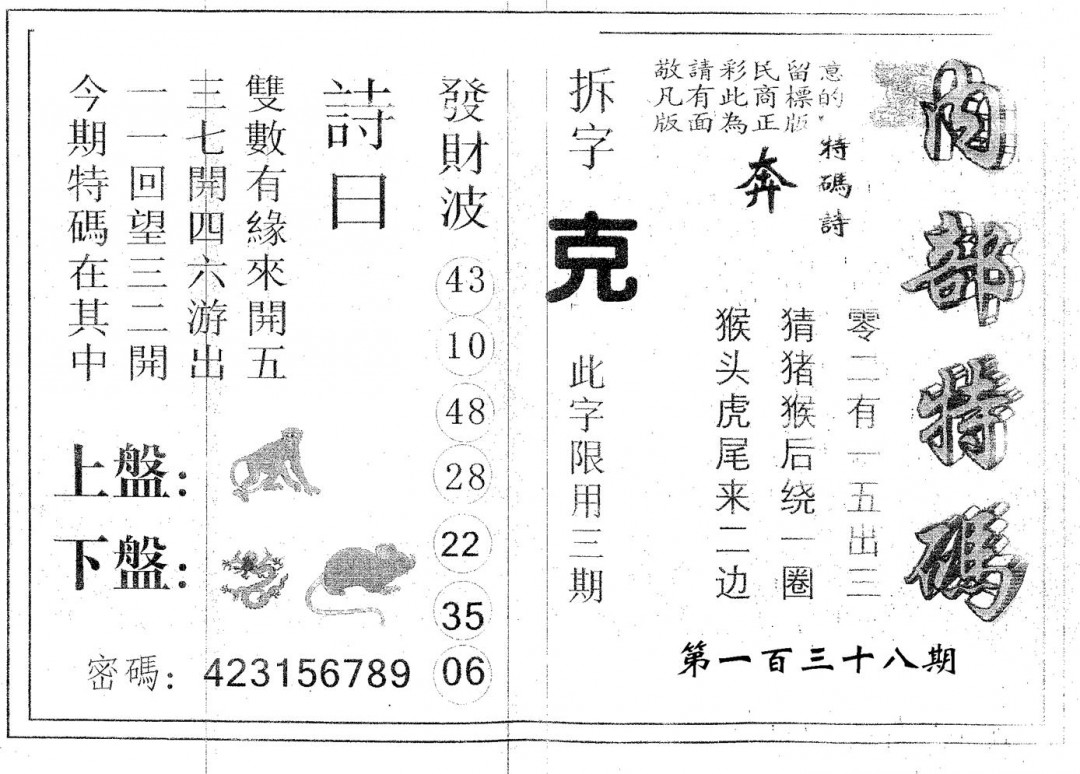 內部特碼
意的，
留標版
民商正
彩此為
請有面
敬凡版
特碼詩
奔
零二有一五出三
猜猪猴后绕一圈
猴头虎尾来二边
第一百三十八期
拆字
克
此字限用三期
發財波
43
10
48
28
22
35
06
詩曰
雙數有緣來開五
三七開四六游出
一一回望三二開
今期特碼在其中
上盤：
下盤：
密碼：423156789